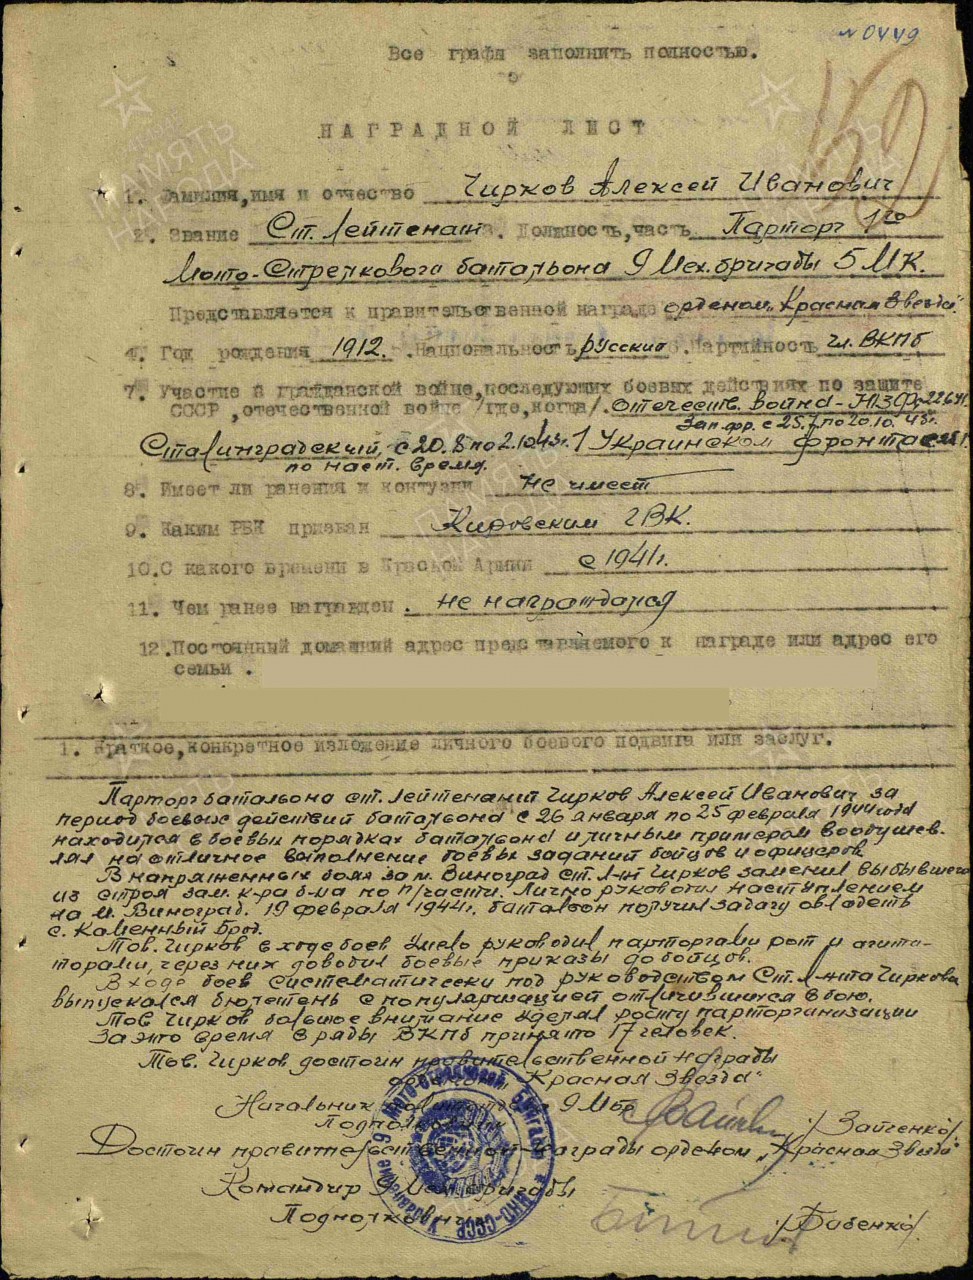 №0449
Все графы заполнить полностью.
НАГРАДНОЙ ЛИСТ
1. Фамилия, имя и отчество Чирков Алексей Иванович
2. Звание Ст. Лейтенант 3. Должность, часть Парторг 1го
Мото-Стрелкового батальона 9 Мех. бригады 5 М К.
Представляется к правительственной награде орденом "Красная Звезда".
4. Год рождения 1912. 5. Национальность русский 6. Партийность чл. ВКПб
7. Участие в гражданской войне, последующих боевых действиях по защите
СССР, отечественной войне /где, когда/. отечеств. война - ЮЗФр
Зап. фр. с 25.7 по 20.10. 43г.
Сталинградский, с 20.8 по 2.10 43г. 1 Украинском фронте с
по наст. время.
8. Имеет ли ранения и контузии не имеет
9. Каким РВК призван Кировским ГВК.
10. С какого времени в Красной Армии с 1941г.
11. Чем ранее награжден. не награждался
12. Постоянный домашний адрес представляемого к награде или адрес его
семьи.
1. Краткое, конкретное изложение личного боевого подвига или заслуг.
Парторг батальона ст. Лейтенант Чирков Алексей Иванович за
период боевых действий батальона с 26 января по 25 февраля 1944 года
находился в боевых порядках батальона и личным примером воодушев-
лял на отличное выполнение боевых заданий бойцов и офицеров.
В напряженных боях за м. Виноград ст. л-нт Чирков заменил выбывшего
из строя зам. к-ра б-на по п/части. Лично руководил наступлением
на м. Виноград. 19 февраля 1944г. батальон получил задачу овладеть
с. Каменный Брод.
Тов. Чирков в ходе боев умело руководил парторгами рот и агита-
торами, через них доводил боевые приказы до бойцов.
В ходе боев систематически под руководством Ст. л-нта Чиркова
выпускался бюлетень с популяризацией отличившихся в бою.
Тов Чирков большое внимание уделял росту парторганизации
За это время в ряды ВКПб принято 17 человек.
Тов. Чирков достоин правительственной награды
орденом "Красная Звезда"
Начальник политотдела 9 Мбр
Подполковник /Зайченко/
Достоин правительственной награды орденом "Красная Звезда"
Командир 9 Мех. бригады
Подполковник /Бабенко/
Управление 9 Мото-стрелковой бригады НКО-СССР
ПАМЯТЬ
НАРОДА